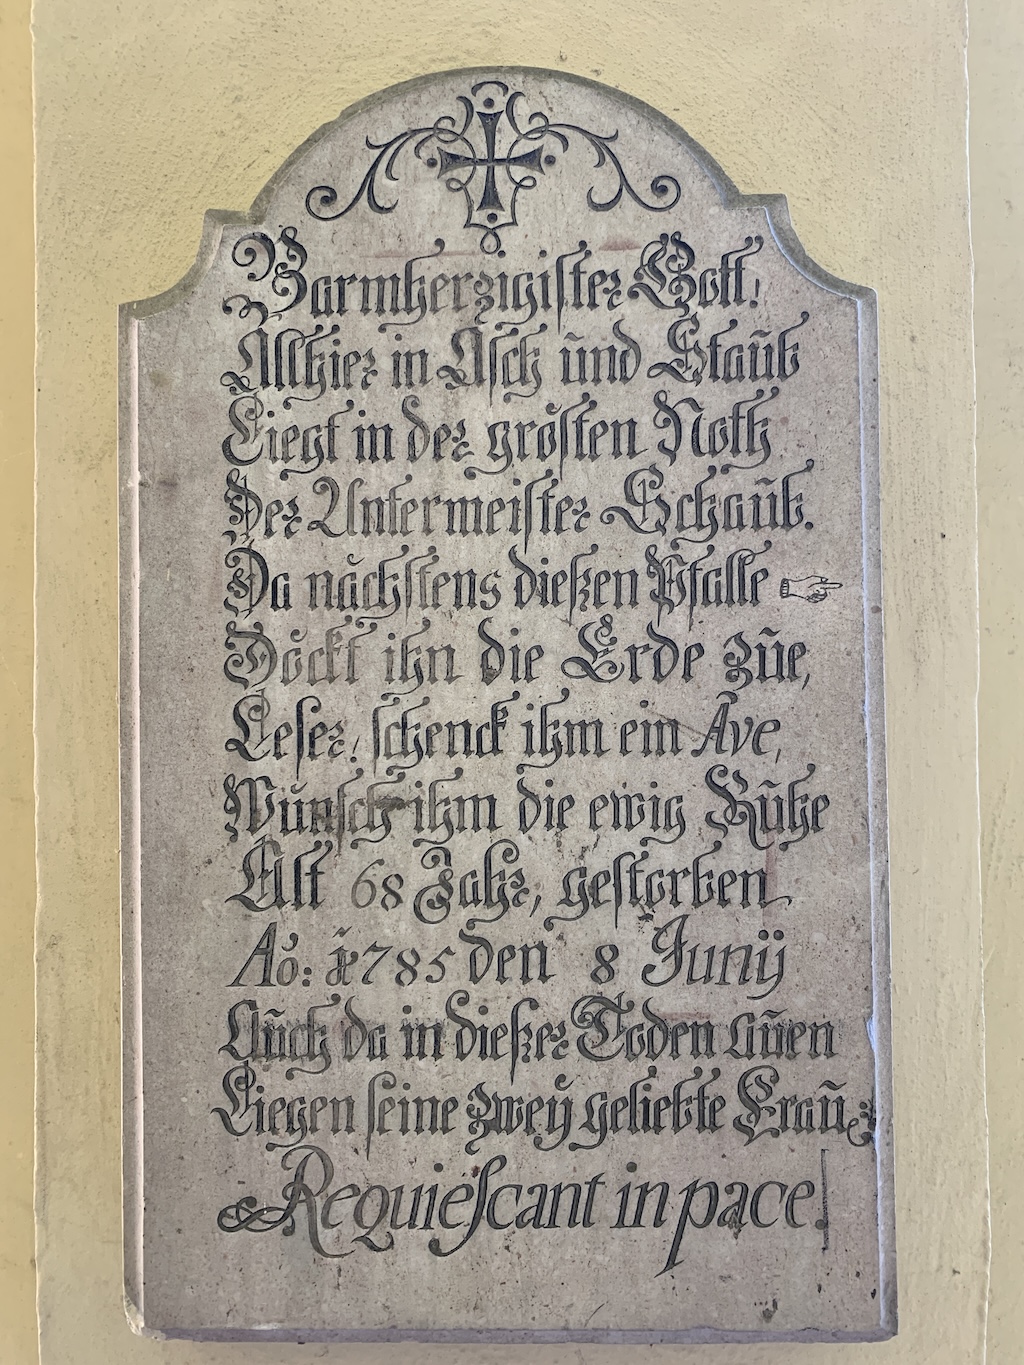 Barmherzigister Gott!
Allhier in Asch und Staub
Liegt in der grösten Noth
Der Untermeister Schaub.
Da nächstens dießen Pfalle
Döckt ihn die Erde zue,
Leser! schenck ihm ein Ave,
Wünsch ihm die ewig Ruhe
Alt 68 Jahr, gestorben
Aō: 1785 den 8 Junÿ
Auch da in dießer Toden auen
Liegen seine zweÿ geliebte Frau:
Requiescant in pace!